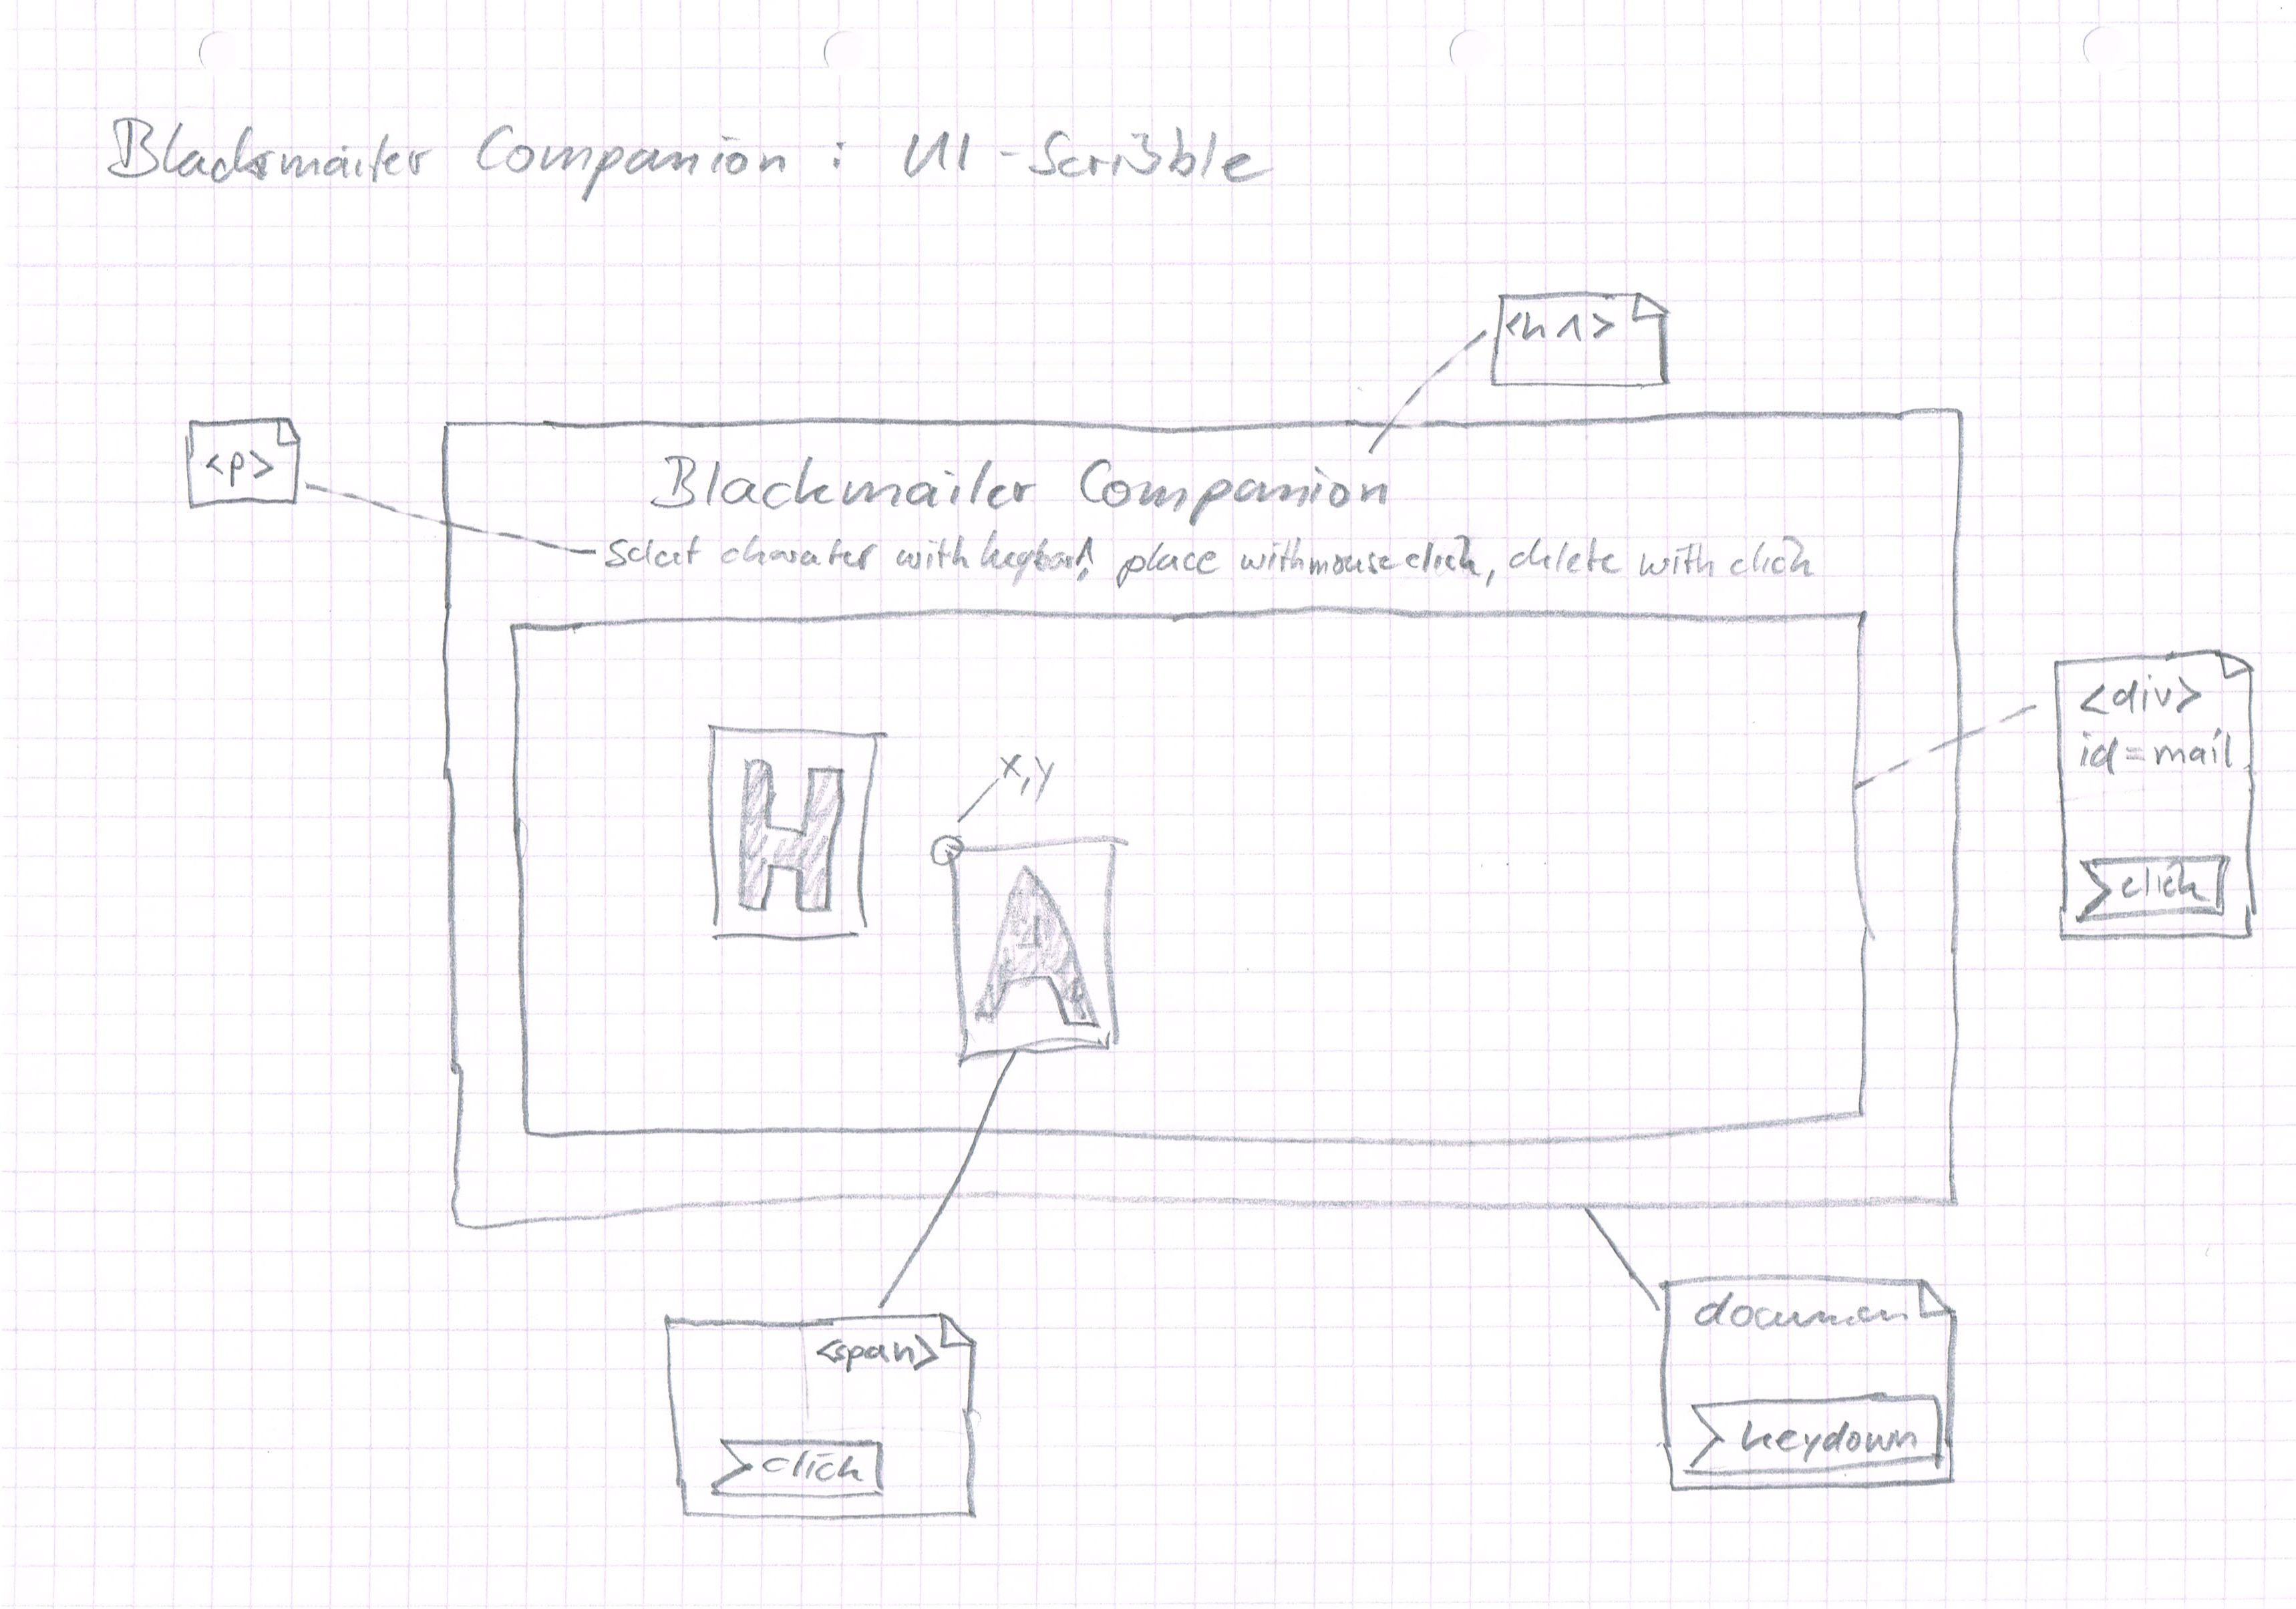 Blackmailer Companion : UI - Scribble
<h1>
<p>
Blackmailer Companion
Select charater with keyboard, place with mouse click, delete with click
<div>
id=mail
x,y
H
A
click
<span>
click
document
keydown